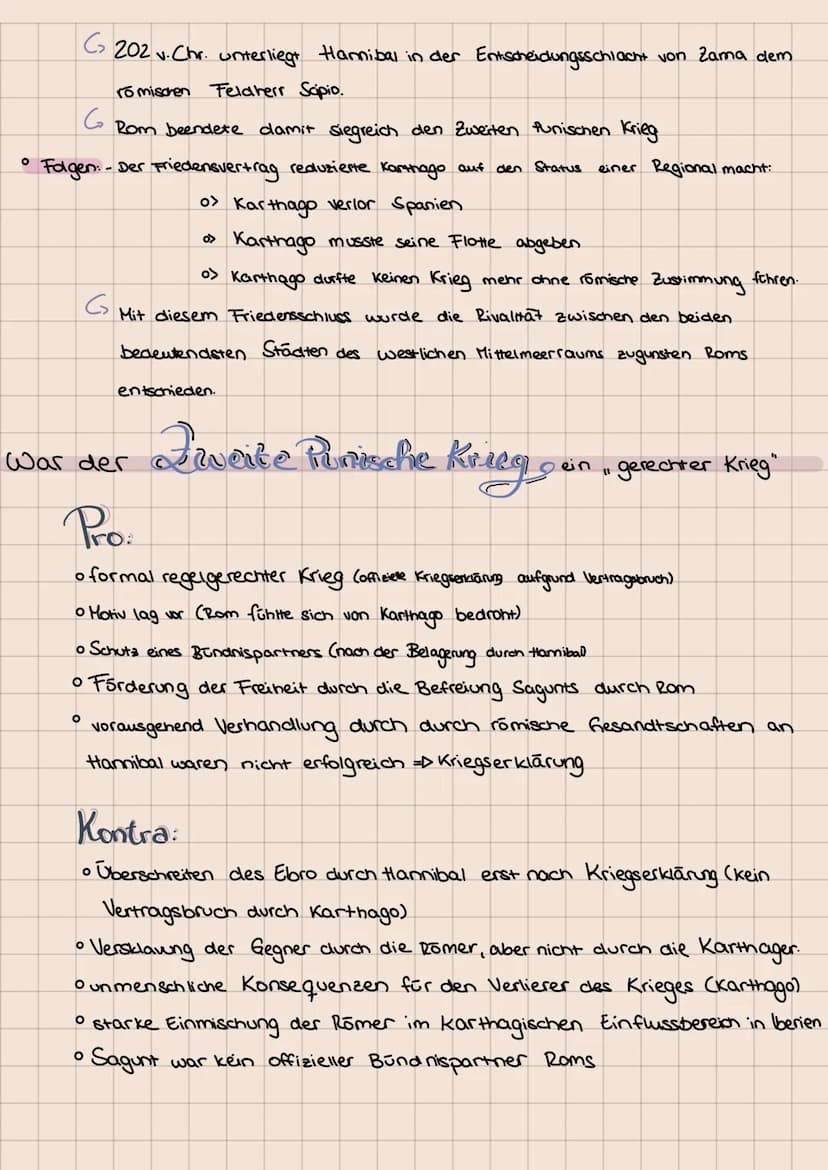 202 v. Chr. unterliegt Hannibal in der Entscheidungsschlacht von Zama dem
römischen Feldherr Scipio.
Rom beendete damit siegreich den Zweiten Punischen Krieg
Folgen: - Der Friedensvertrag reduzierte Karthago auf den Status einer Regional macht:
Karthago verlor Spanien
Karthago musste seine Flotte abgeben
Karthago durfte keinen Krieg mehr ohne römische Zustimmung führen.
Mit diesem Friedensschluss wurde die Rivalität zwischen den beiden
bedeutendsten Städten des westlichen Mittelmeerraums zugunsten Roms
entschieden.
War der Zweite Punische Krieg ein „gerechter Krieg"
Pro:
formal regelgerechter Krieg (offizielle Kriegserklärung aufgrund Vertragsbruch)
Motiv lag vor (Rom fühlte sich von Karthago bedroht)
Schutz eines Bündnispartners (nach der Belagerung durch Hannibal)
Förderung der Freiheit durch die Befreiung Sagunts durch Rom
vorausgehend Verhandlung durch durch römische Gesandtschaften an
Hannibal waren nicht erfolgreich => Kriegserklärung
Kontra:
Überschreiten des Ebro durch Hannibal erst nach Kriegserklärung (kein
Vertragsbruch durch Karthago)
Versklavung der Gegner durch die Römer, aber nicht durch die Karthager.
unmenschliche Konsequenzen für den Verlierer des Krieges (Karthago)
starke Einmischung der Römer im karthagischen Einflussbereich in Iberien
Sagunt war kein offizieller Bündnispartner Roms